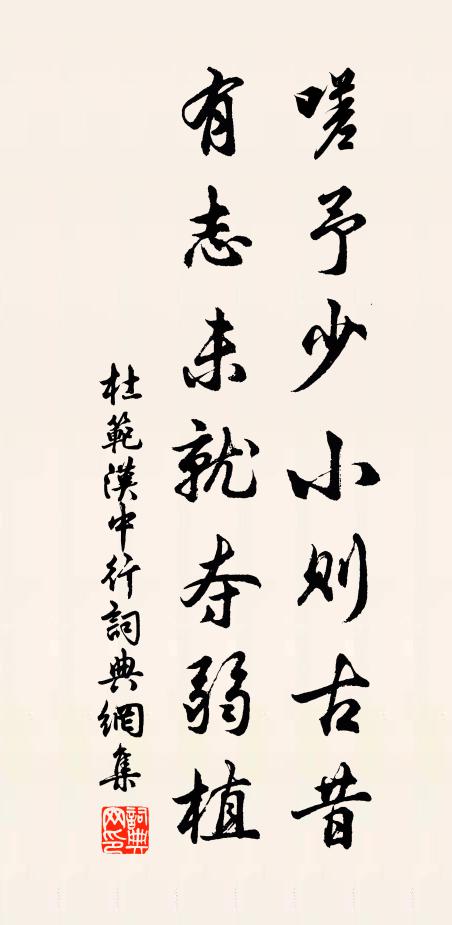 嗟予少小则古昔
有志未就夺弱植
杜範漢中行詞典網集
詞典網印